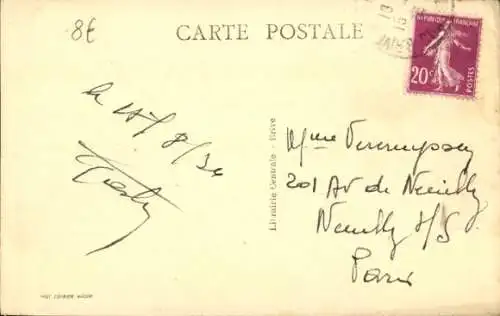 8€
CARTE POSTALE
REPUBLIQUE FRANÇAISE
20c
POSTES
le 14/8/34
Librairie Centrale - Brive
Mme
201 Av de Neuilly
Neuilly s/S.
Paris